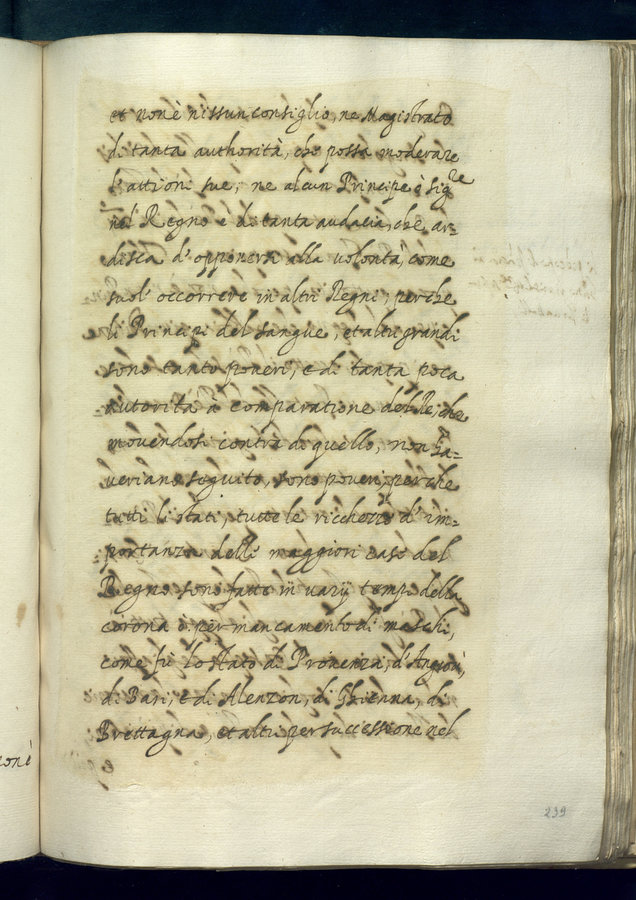 et non è nissun consiglio, ne Magistrato
di tanta authorità, che possa moderare
l'attioni sue, ne alcun Principe ò sig.re
nel Regno è di tanta audacia, che ar-
disca d'opponersi alla volontà, come
suol' occorrere in altri Regni; perche
li Principi del sangue, et altri grandi
sono tanto poveri, e di tanta poca
autorità à comparatione del Re, che
movendosi contra di quello, non ha-
veriano seguito, sono poveri, perche
tutti li stati, tutte le ricchezze d'im-
portanza delle maggiori case del
Regno sono fatte in varij tempi della
corona ò per mancamento di maschi,
come fù lo stato di Provenza, d'Angioù,
di Bari, e di Alenzon, di Ghienna, di
Brettagna, et altri per successione nel
239